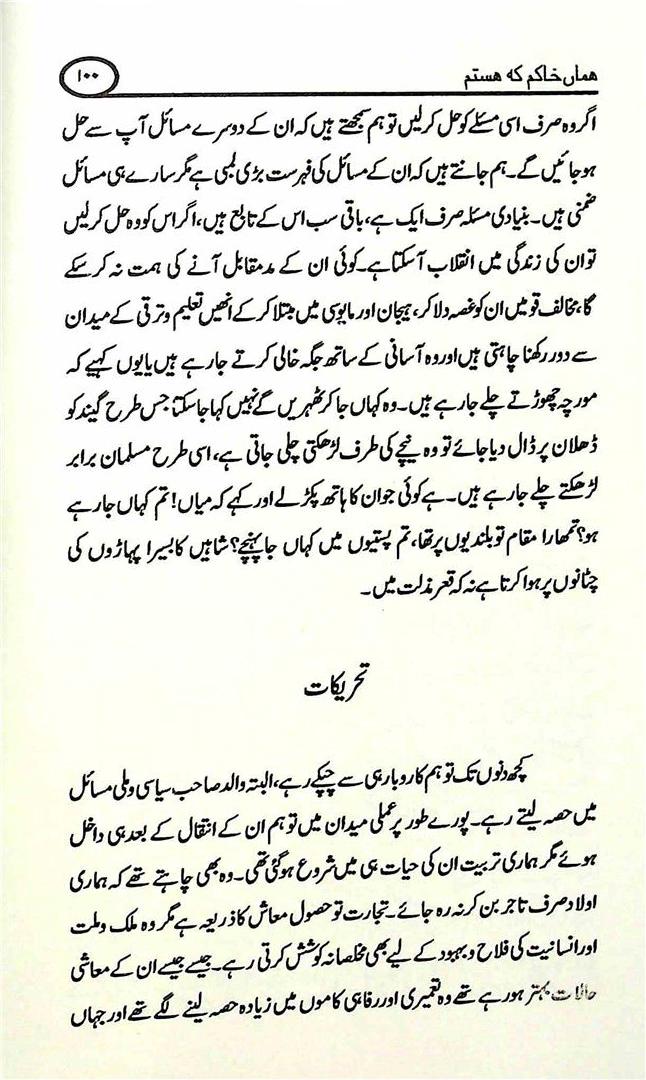 ھماں خاکم که ھستم
۱۰۰
اگر وہ صرف اسی مسئلے کو حل کر لیں تو ہم سمجھتے ہیں کہ ان کے دوسرے مسائل آپ سے حل
ہو جائیں گے۔ ہم جانتے ہیں کہ ان کے مسائل کی فہرست بڑی لمبی ہے مگر سارے ہی مسائل
ضمنی ہیں۔ بنیادی مسئلہ صرف ایک ہے، باقی سب اس کے تابع ہیں، اگر اس کو وہ حل کر لیں
تو ان کی زندگی میں انقلاب آ سکتا ہے۔ کوئی ان کے مدمقابل آنے کی ہمت نہ کر سکے
گا، مخالف قومیں ان کو غصہ دلا کر، ہیجان اور مایوسی میں مبتلا کر کے انھیں تعلیم و ترقی کے میدان
سے دور رکھنا چاہتی ہیں اور وہ آسانی کے ساتھ جگہ خالی کرتے جا رہے ہیں یا یوں کہیے کہ
مورچہ چھوڑتے چلے جا رہے ہیں۔ وہ کہاں جا کر ٹھہریں گے نہیں کہا جا سکتا جس طرح گیند کو
ڈھلان پر ڈال دیا جائے تو وہ نیچے کی طرف لڑھکتی چلی جاتی ہے، اسی طرح مسلمان برابر
لڑھکتے چلے جا رہے ہیں۔ ہے کوئی جو ان کا ہاتھ پکڑ لے اور کہے کہ میاں! تم کہاں جا رہے
ہو؟ تمھارا مقام تو بلندیوں پر تھا، تم پستیوں میں کہاں جا پہنچے؟ شاہیں کا بسیرا پہاڑوں کی
چٹانوں پر ہوا کرتا ہے نہ کہ قعر مذلت میں۔
تحریکات
کچھ دنوں تک تو ہم کاروبار ہی سے چپکے رہے، البتہ والد صاحب سیاسی و ملی مسائل
میں حصہ لیتے رہے۔ پورے طور پر عملی میدان میں تو ہم ان کے انتقال کے بعد ہی داخل
ہوئے مگر ہماری تربیت ان کی حیات ہی میں شروع ہو گئی تھی۔ وہ بھی چاہتے تھے کہ ہماری
اولاد صرف تاجر بن کر نہ رہ جائے۔ تجارت تو حصول معاش کا ذریعہ ہے مگر وہ ملک و ملت
اور انسانیت کی فلاح و بہبود کے لیے بھی مخلصانہ کوشش کرتی رہے۔ جیسے جیسے ان کے معاشی
حالات بہتر ہو رہے تھے وہ تعمیری اور رفاہی کاموں میں زیادہ حصہ لینے لگے تھے اور جہاں